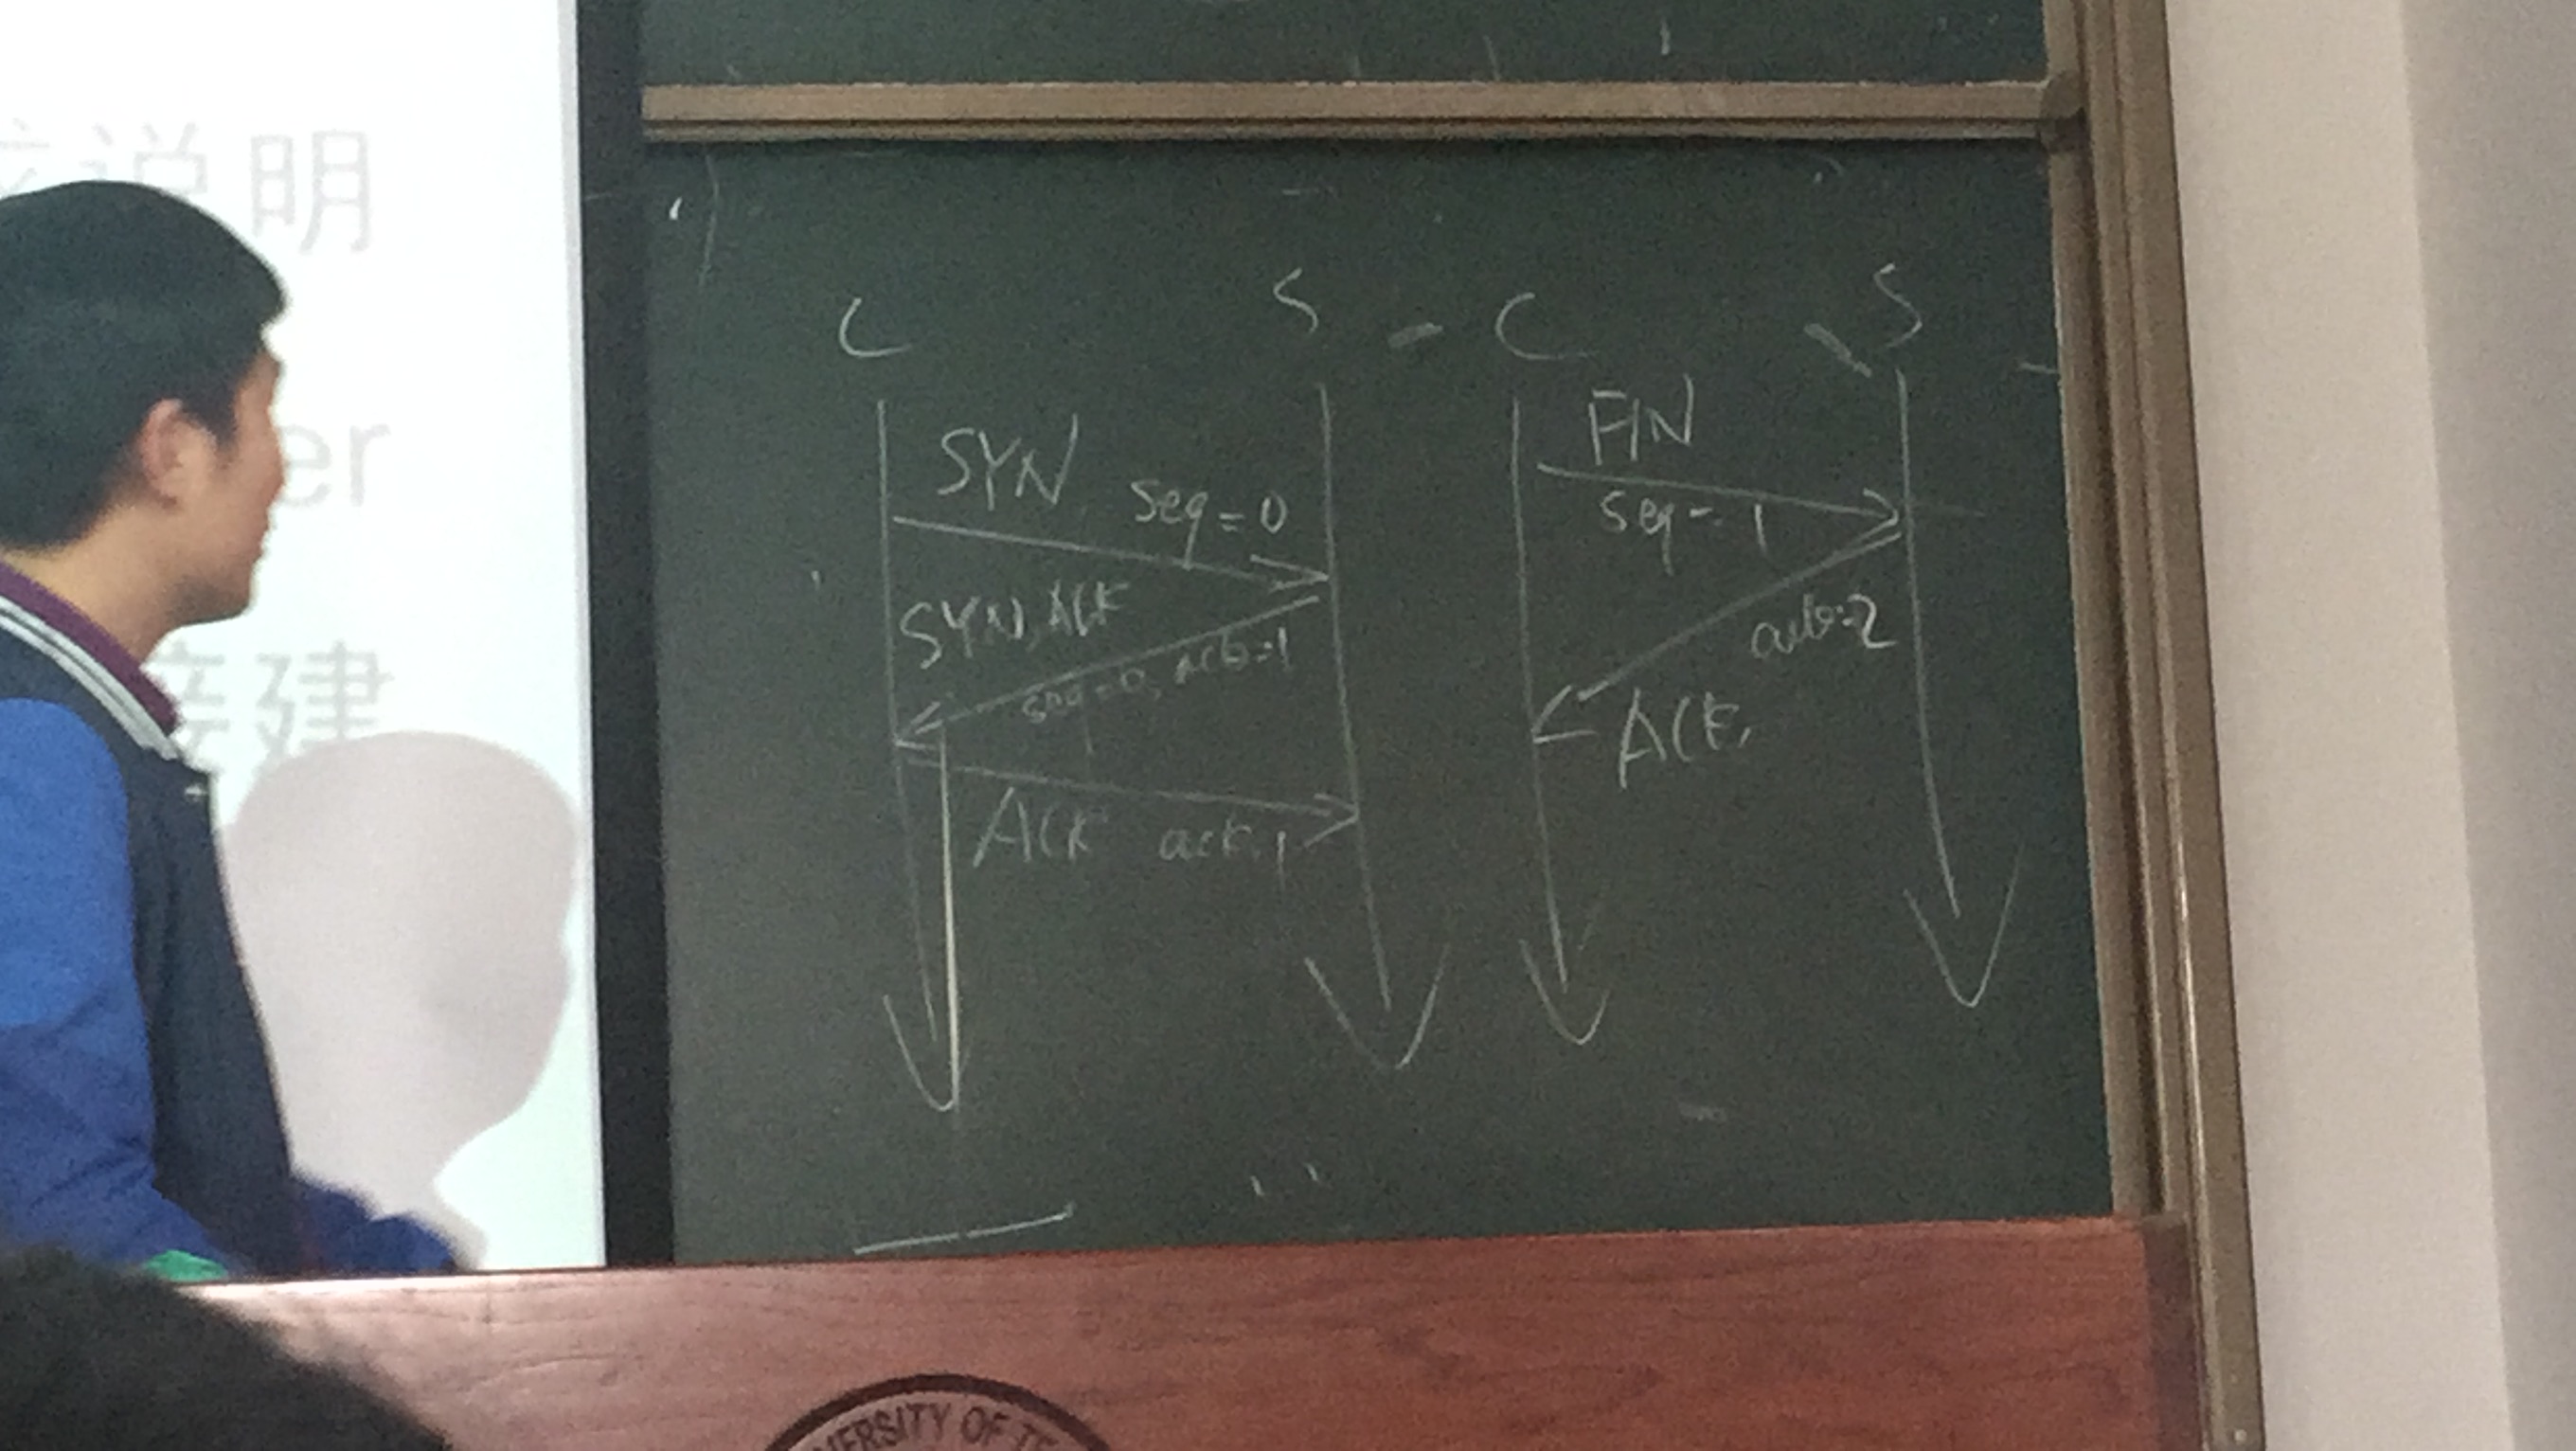 说明
er
建
C S
SYN
seq=0
SYN, ACK
seq=0, ack=1
ACK ack=1
C S
FIN
seq=1
ack=2
ACK,
VERSITY OF TE